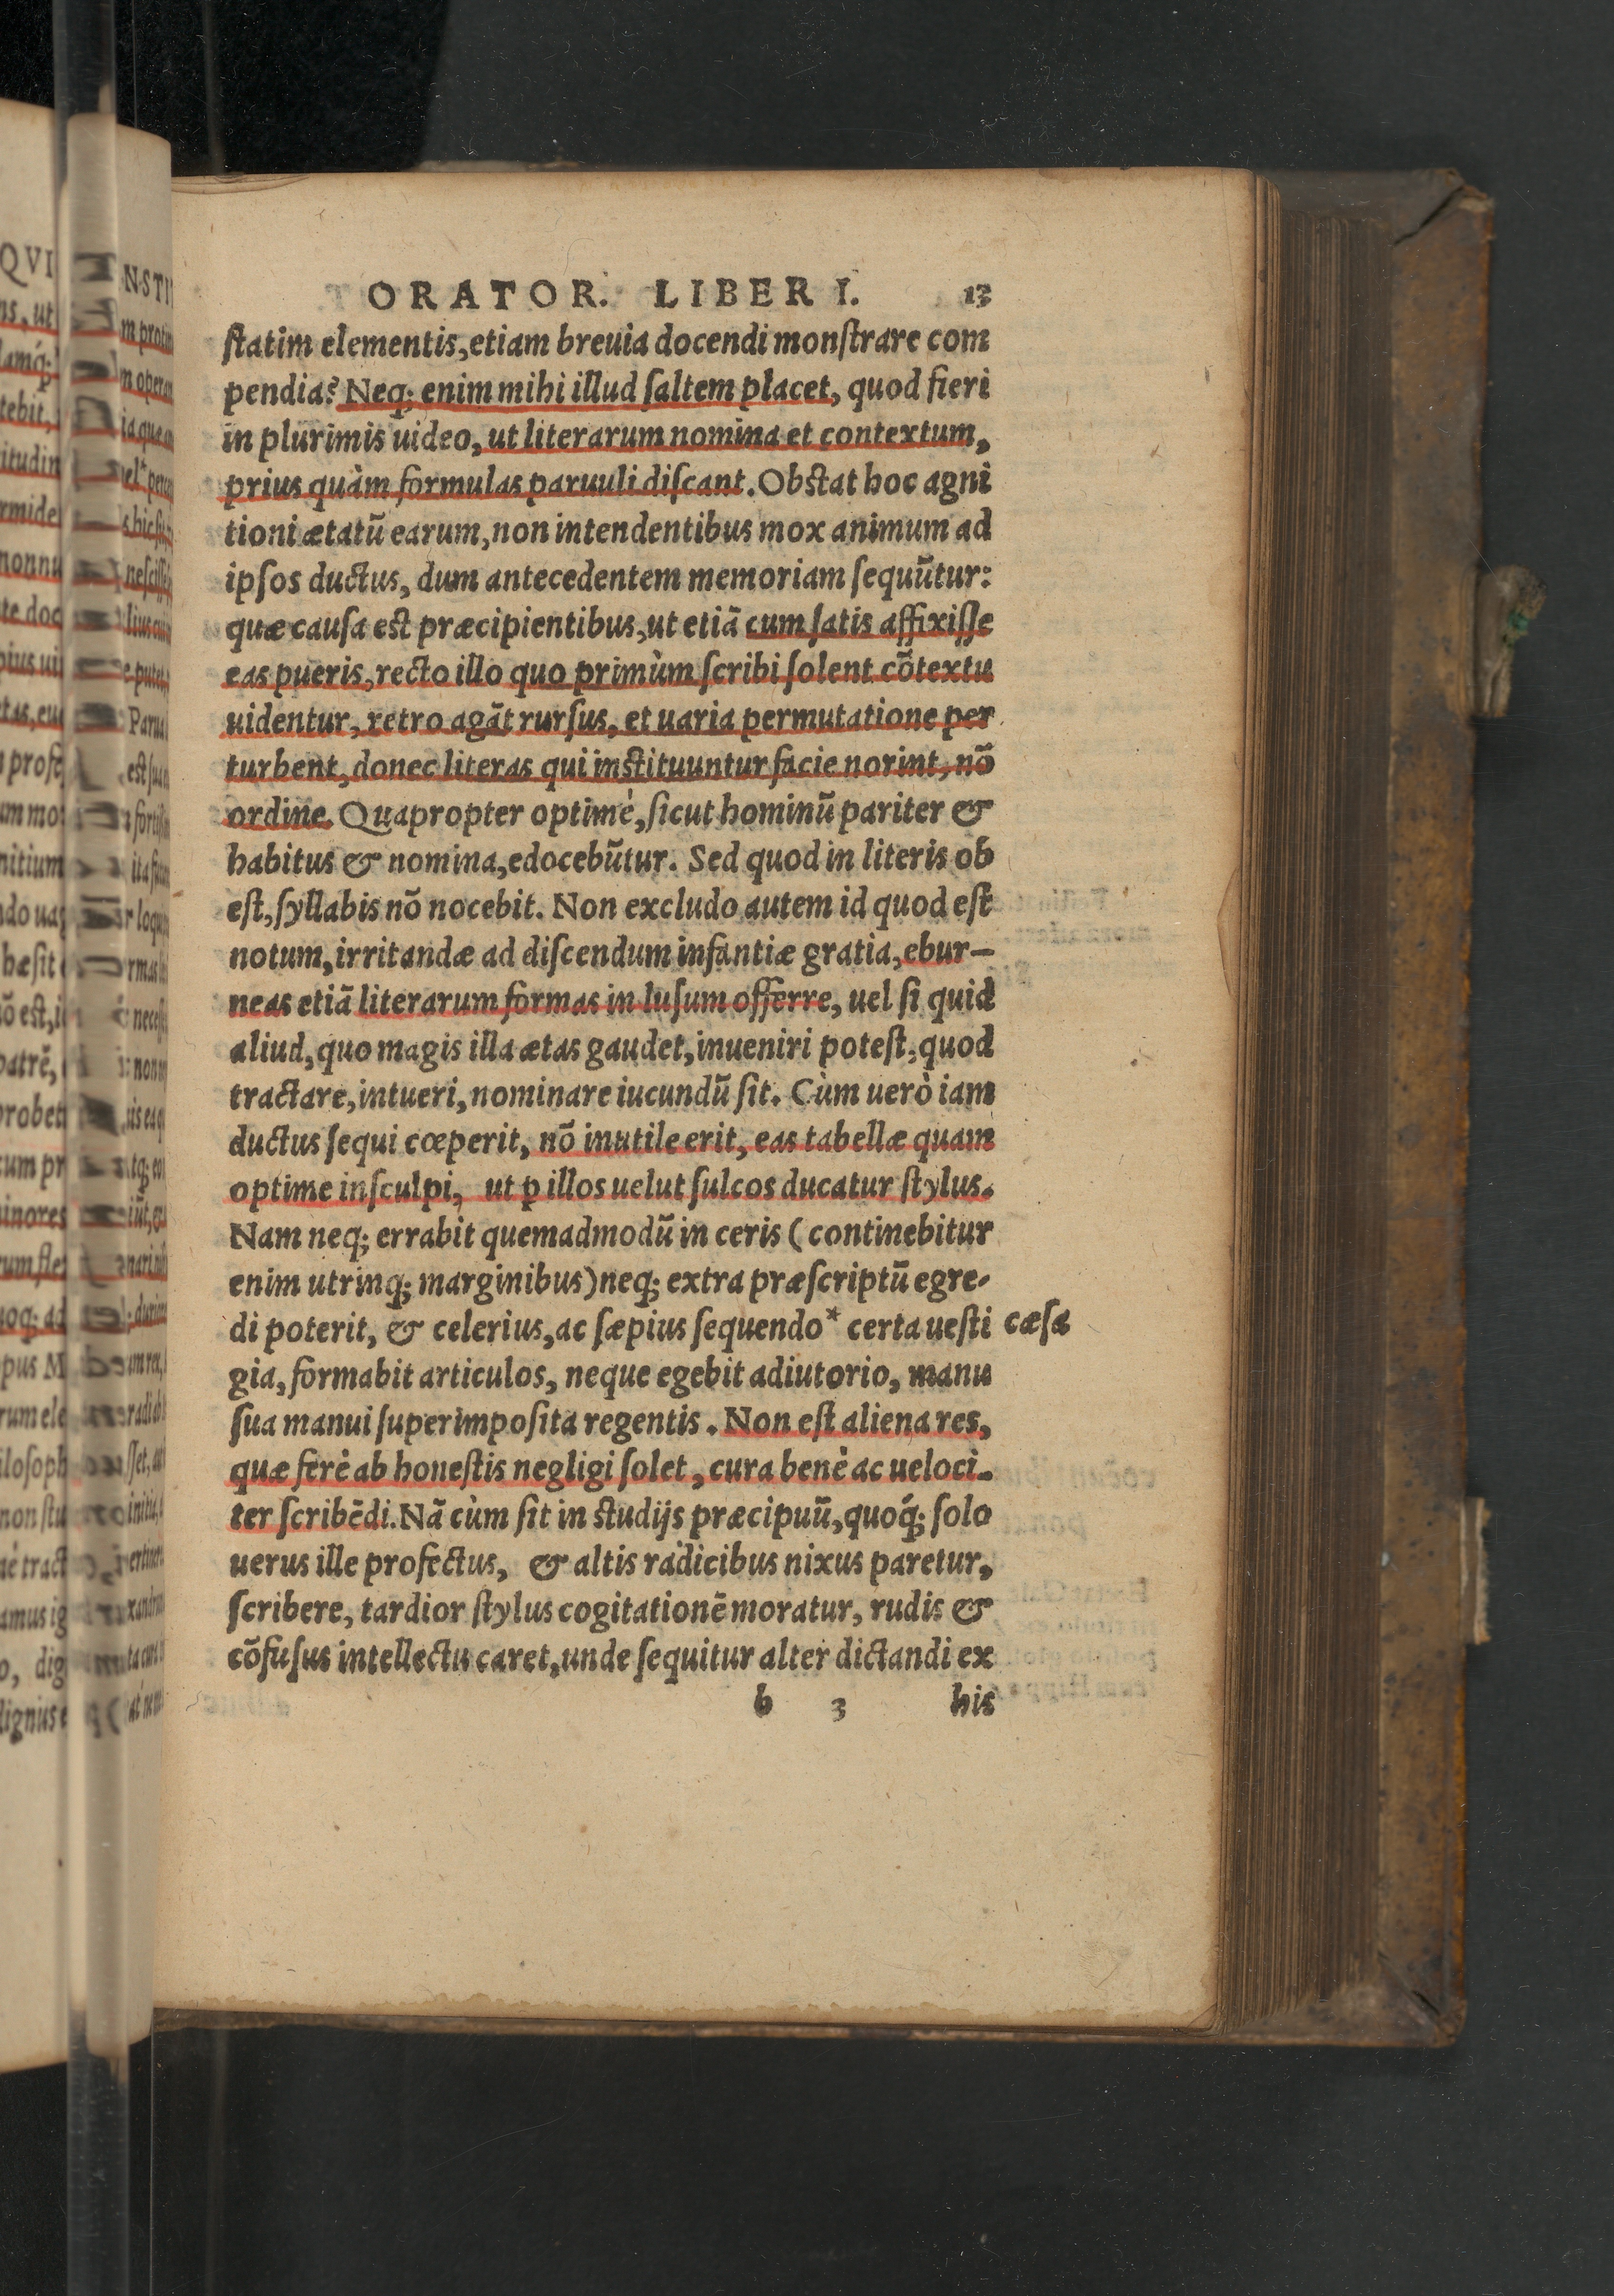 ORATOR. LIBER I. 13
ſtatim elementis, etiam breuia docendi monſtrare com
pendia? Neq; enim mihi illud ſaltem placet, quod fieri
in plurimis uideo, ut literarum nomina et contextum,
prius quàm formulas paruuli diſcant. Obſtat hoc agni
tioni ætatũ earum, non intendentibus mox animum ad
ipſos ductus, dum antecedentem memoriam ſequũtur:
quæ cauſa eſt præcipientibus, ut etiã cum ſatis affixiſſe
eas pueris, recto illo quo primùm ſcribi ſolent cõtextu
uidentur, retro agãt rurſus, et uaria permutatione per
turbent, donec literas qui inſtituuntur facie norint, nõ
ordine. Quapropter optimè, ſicut hominũ pariter &
habitus & nomina, edocebũtur. Sed quod in literis ob
eſt, ſyllabis nõ nocebit. Non excludo autem id quod eſt
notum, irritandæ ad diſcendum infantiæ gratia, ebur-
neas etiã literarum formas in luſum offerre, uel ſi quid
aliud, quo magis illa ætas gaudet, inueniri poteſt, quod
tractare, intueri, nominare iucundũ ſit. Cùm uerò iam
ductus ſequi cœperit, nõ inutile erit, eas tabellæ quam
optime inſculpi, ut ꝑ illos uelut ſulcos ducatur ſtylus.
Nam neq; errabit quemadmodũ in ceris (continebitur
enim utrinq; marginibus) neq; extra præſcriptũ egre-
di poterit, & celerius, ac ſæpius ſequendo* certa ueſti cæſa
gia, formabit articulos, neque egebit adiutorio, manu
ſua manui ſuperimpoſita regentis. Non eſt aliena res,
quæ ferè ab honeſtis negligi ſolet, cura benè ac ueloci-
ter ſcribẽdi. Nã cùm ſit in ſtudijs præcipuũ, quoq́; ſolo
uerus ille profectus, & altis radicibus nixus paretur,
ſcribere, tardior ſtylus cogitationẽ moratur, rudis &
cõfuſus intellectu caret, unde ſequitur alter dictandi ex
b 3 his